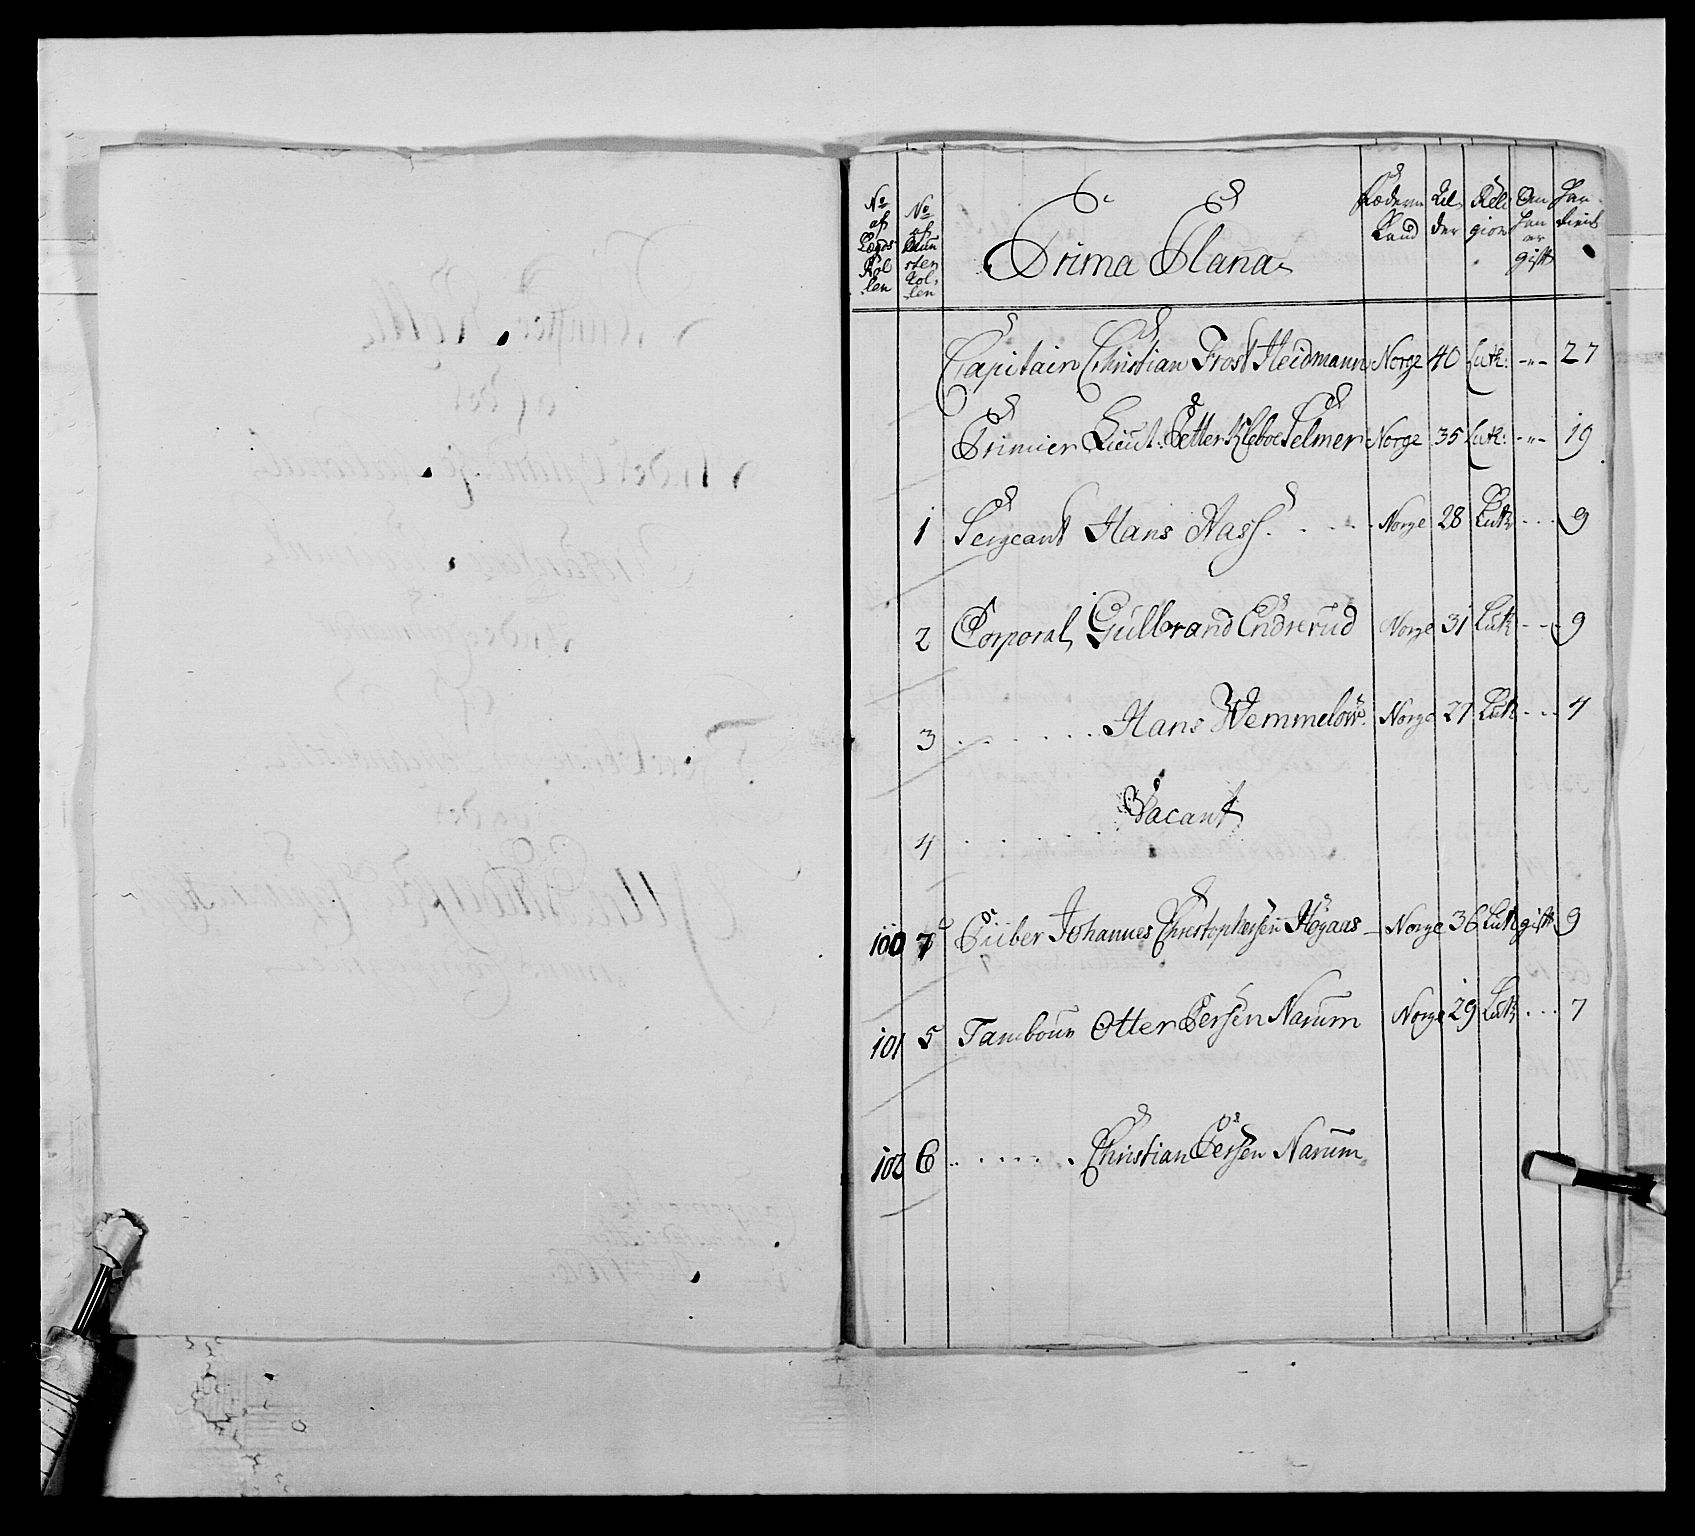 No af Lægds Rollen
No af Munster Rollen
Prima Plana
Fæderne Land
Alder
Religion
Om han er gift
Har tient
Capitain Christian Frost Heidmann Norge 40 Luth: -"- 27
Primier Lieut: Petter Kleboe Selmer Norge 35 Luth: -"- 19
1 Sergeant Hans Hass. . . . . Norge 28 Luth . . . 9
2 Corporal Gulbrand Endrerud Norge 31 Luth - - - 9
3 . . . . . . Hans Wemmelöw. Norge 27 Luth . . . 4
4 . . . . . Vacant
100 7 Piiber Johannes Christophersen Høgaas - Norge 36 Luth gift 9
101 5 Tambour Otter Persen Narum Norge 29 Luth . . . 7
102 6 . . . . . . Christian Persen Narum